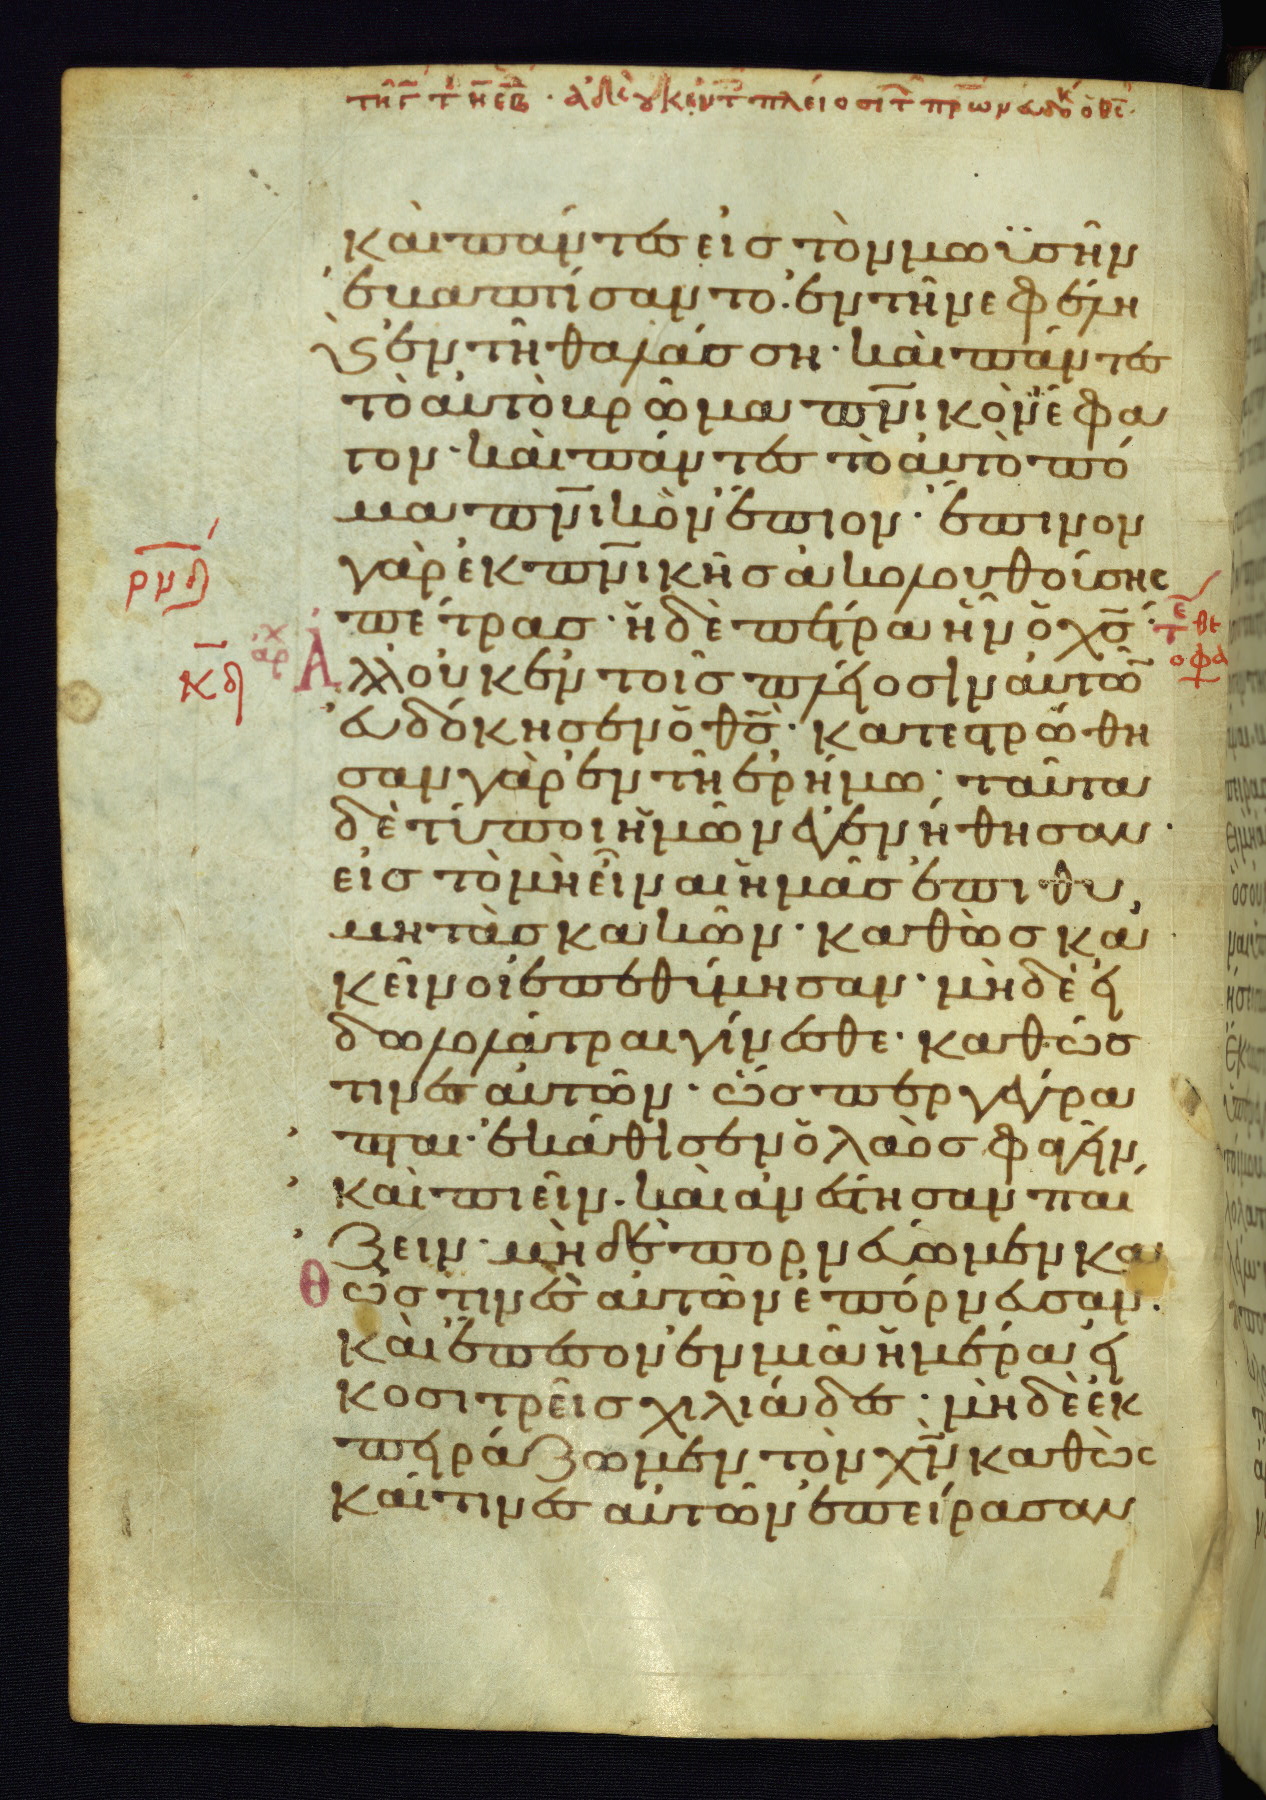 καὶ πάντες εἰς τὸν μωϋσῆν
ἐβαπτίσαντο· ἐν τῆ νεφέλη
ϗ ἐν τῆ θαλάσση· καὶ πάντες
τὸ αὐτὸ βρῶμα π̅ν̅ικὸν ἔφα
γον· καὶ πάντες τὸ αὐτὸ πό
μα π̅ν̅ικὸν ἔπιον· ἔπινον
γὰρ ἐκ π̅ν̅ικῆς ἀκολουθούσης
πέτρας· ἡ δὲ πέτρα ἦν ὁ χ̅ς̅·
Ἀλλ οὐκ ἐν τοῖς πλείοσιν αὐτῶν
εὐδόκησεν ὁ θ̅ς̅· κατεστρώθη
σαν γὰρ ἐν τῆ ἐρήμω· ταῦτα
δὲ τύποι ἡμῶν ἐγενήθησαν·
εἰς τὸ μὴ εἶναι ἡμᾶς ἐπιθυ
μητὰς κακῶν· καθὼς κα
κεῖνοι ἐπεθύμησαν· μὴ δὲ εἰ
δωλολάτραι γίνεσθε· καθώς
τινες αὐτῶν· ὥσπερ γέγρα
πται· ἐκάθισεν ὁ λαὸς φαγεῖν
καὶ πιεῖν· καὶ ἀνέστησαν παί
ζειν· μὴ δὲ πορνεύωμεν κα
θώς τινες αὐτῶν ἐπόρνευσαν·
καὶ ἔπεσον ἐν μιᾶ ἡμέρα εἰ
κοσι τρεῖς χιλιάδες· μὴ δὲ ἐκ
πειράζωμεν τὸν χ̅ν̅ καθὼς
καί τινες αὐτῶν ἐπείρασαν
ρμδ
κδ
ἀρχ